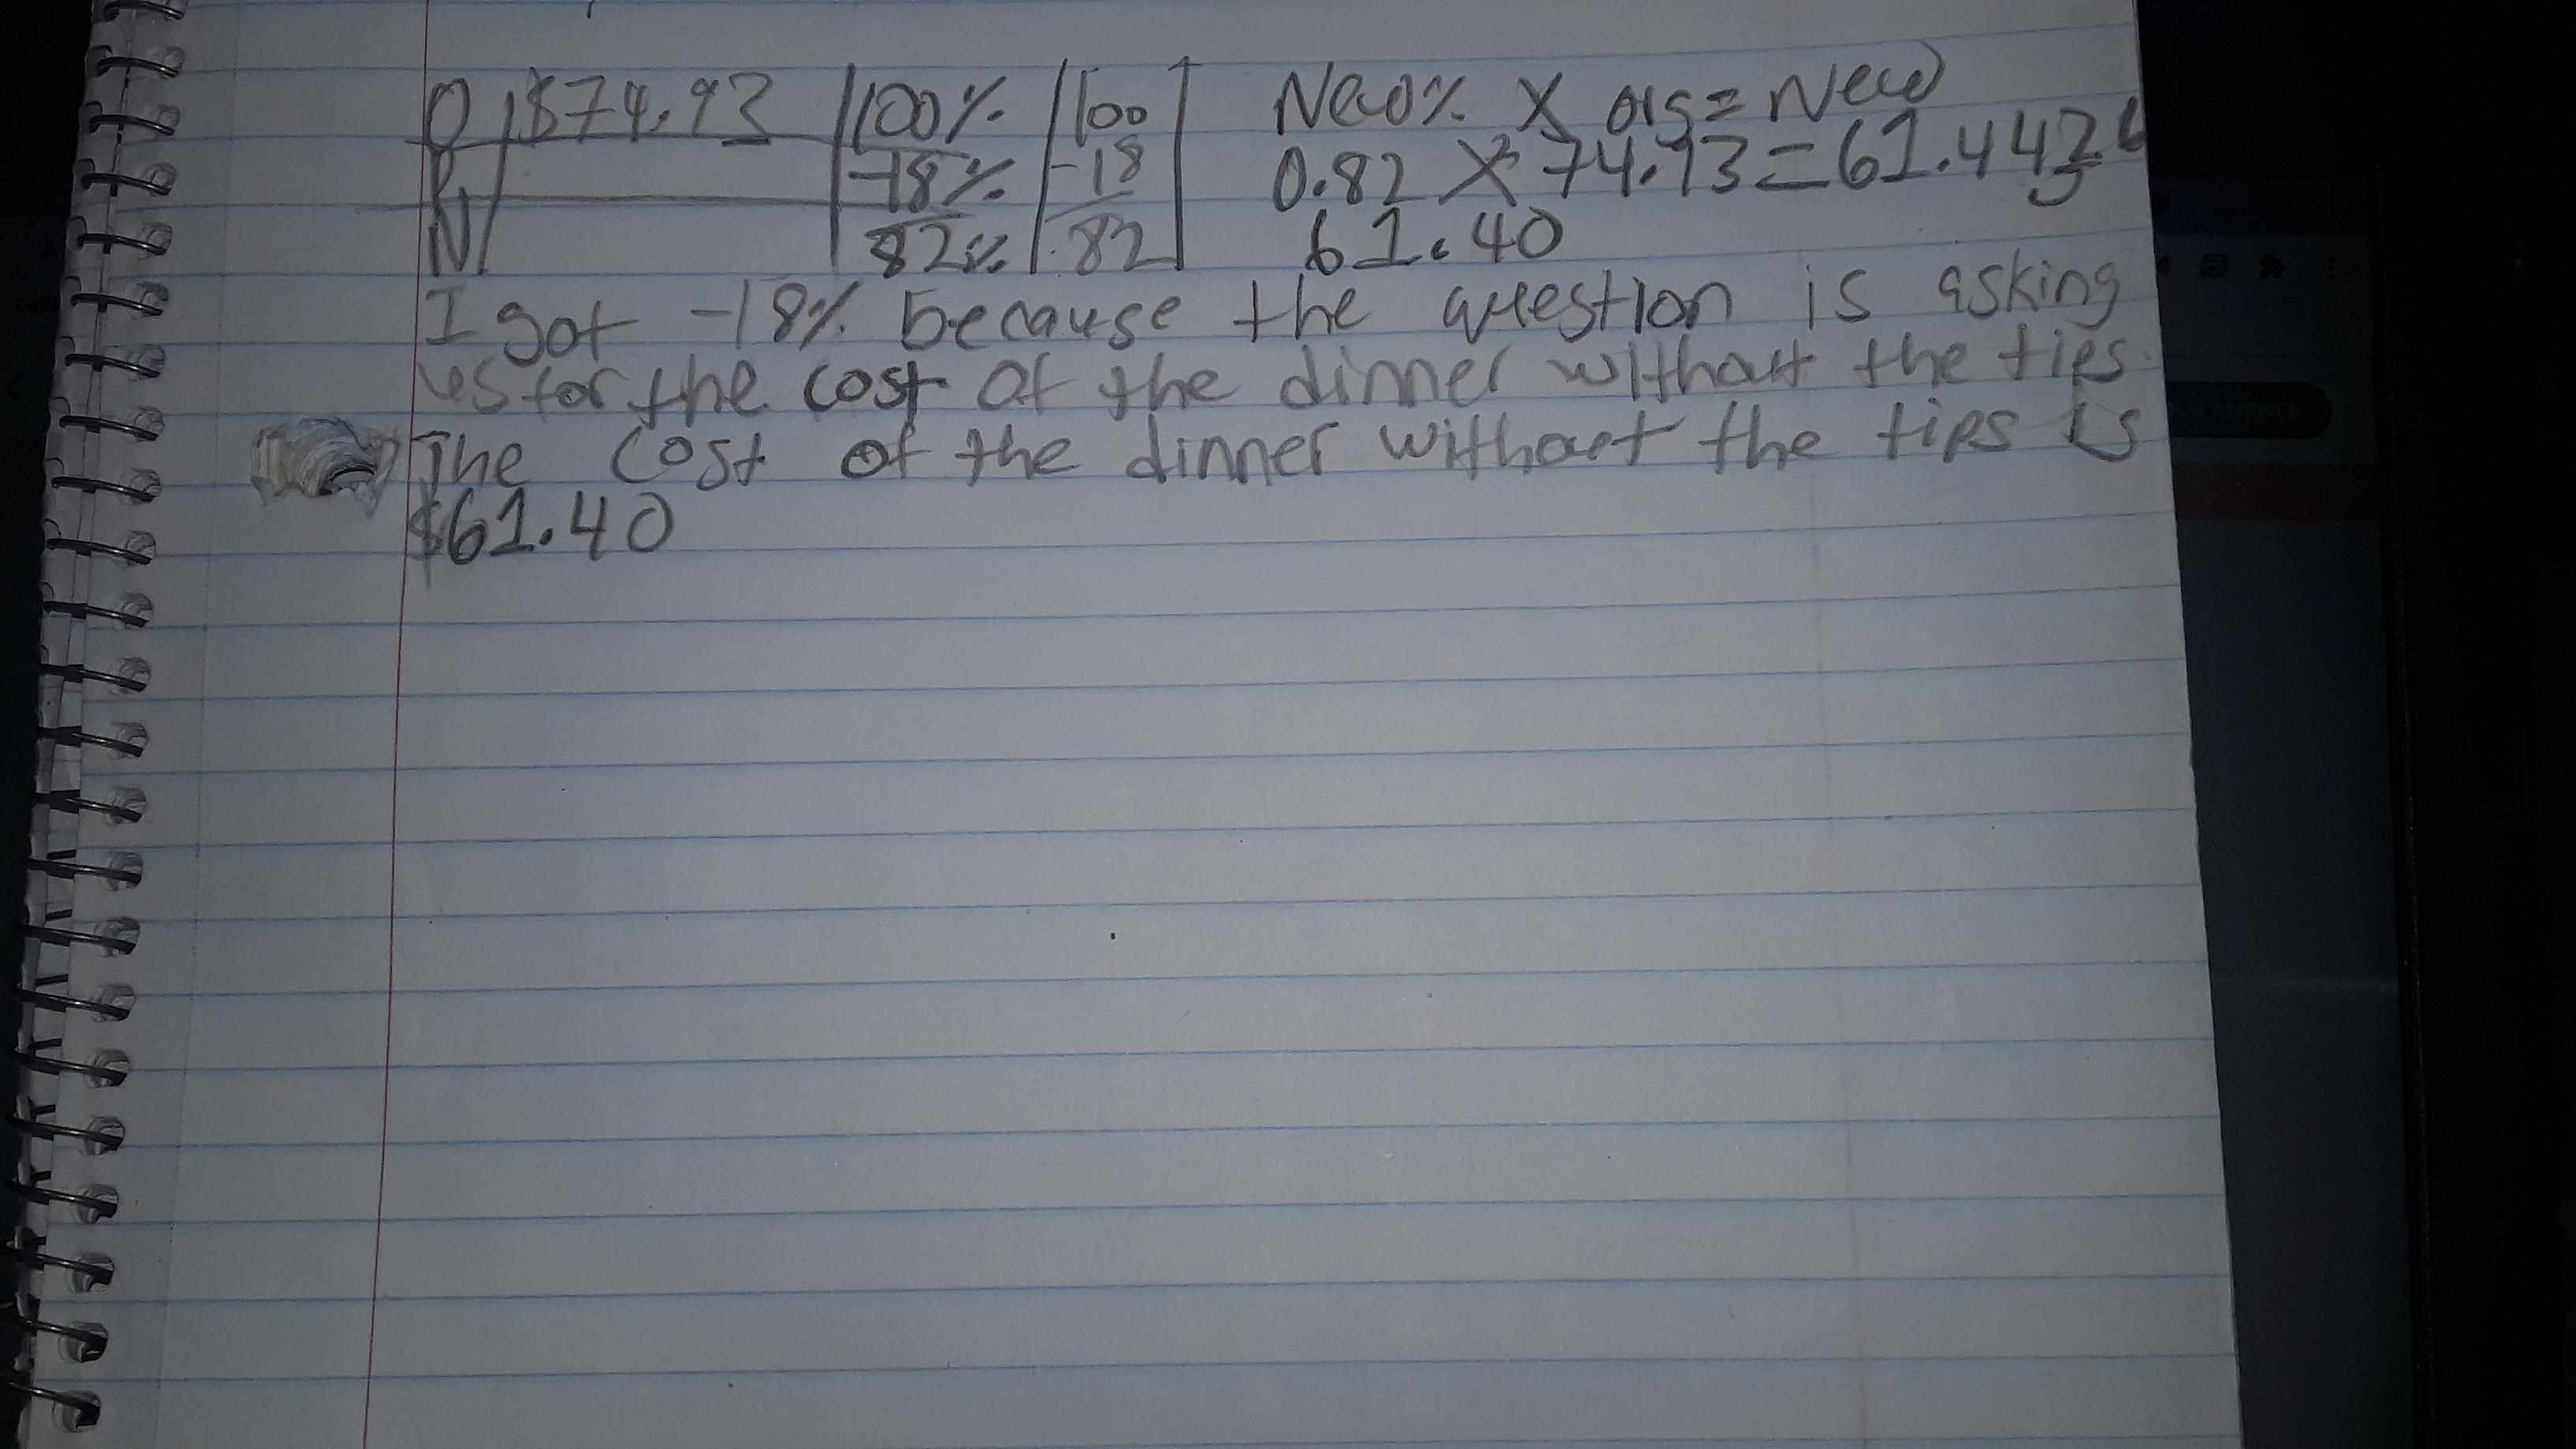 O $74.93 100% 100 New% X orig = New
P -18% -18 0.82 X 74.93 = 61.4426
N 82% .82 61.40
I got -18% because the question is asking
us for the cost of the dinner without the tips.
The cost of the dinner without the tips is
$61.40
UR ANSWER